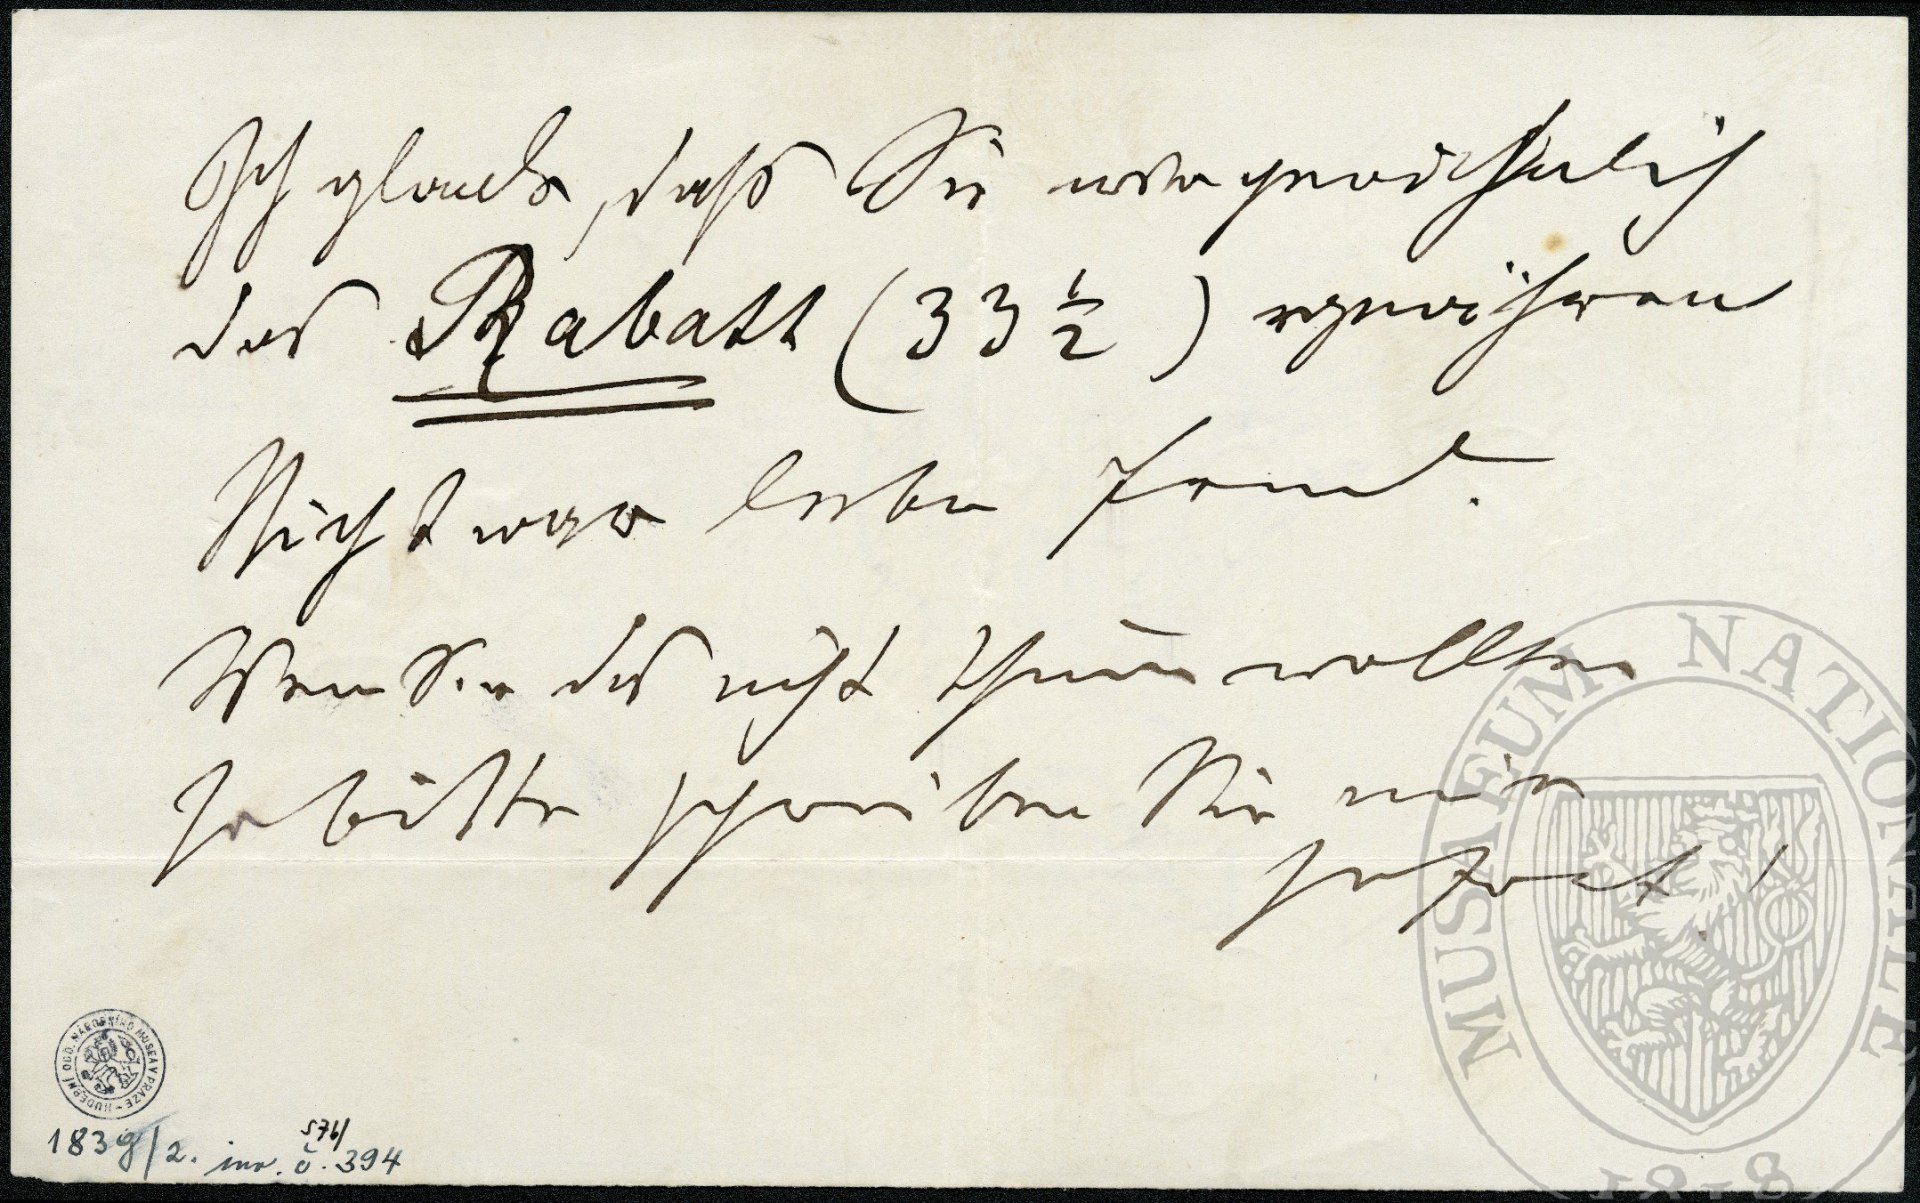 Ich glaube, daß Sie mir gewöhnlich
das Rabatt (33 1/2) gewähren
Nicht war lieber Freund.
Wenn Sie das nicht thun wollten
so bitte schreiben Sie mir
sofort!
HUDEBNÍ ODD. NÁRODNÍHO MUSEA V PRAZE
1839/2. inv. č. 394
576/
MUSAEUM NATIONALE
1818